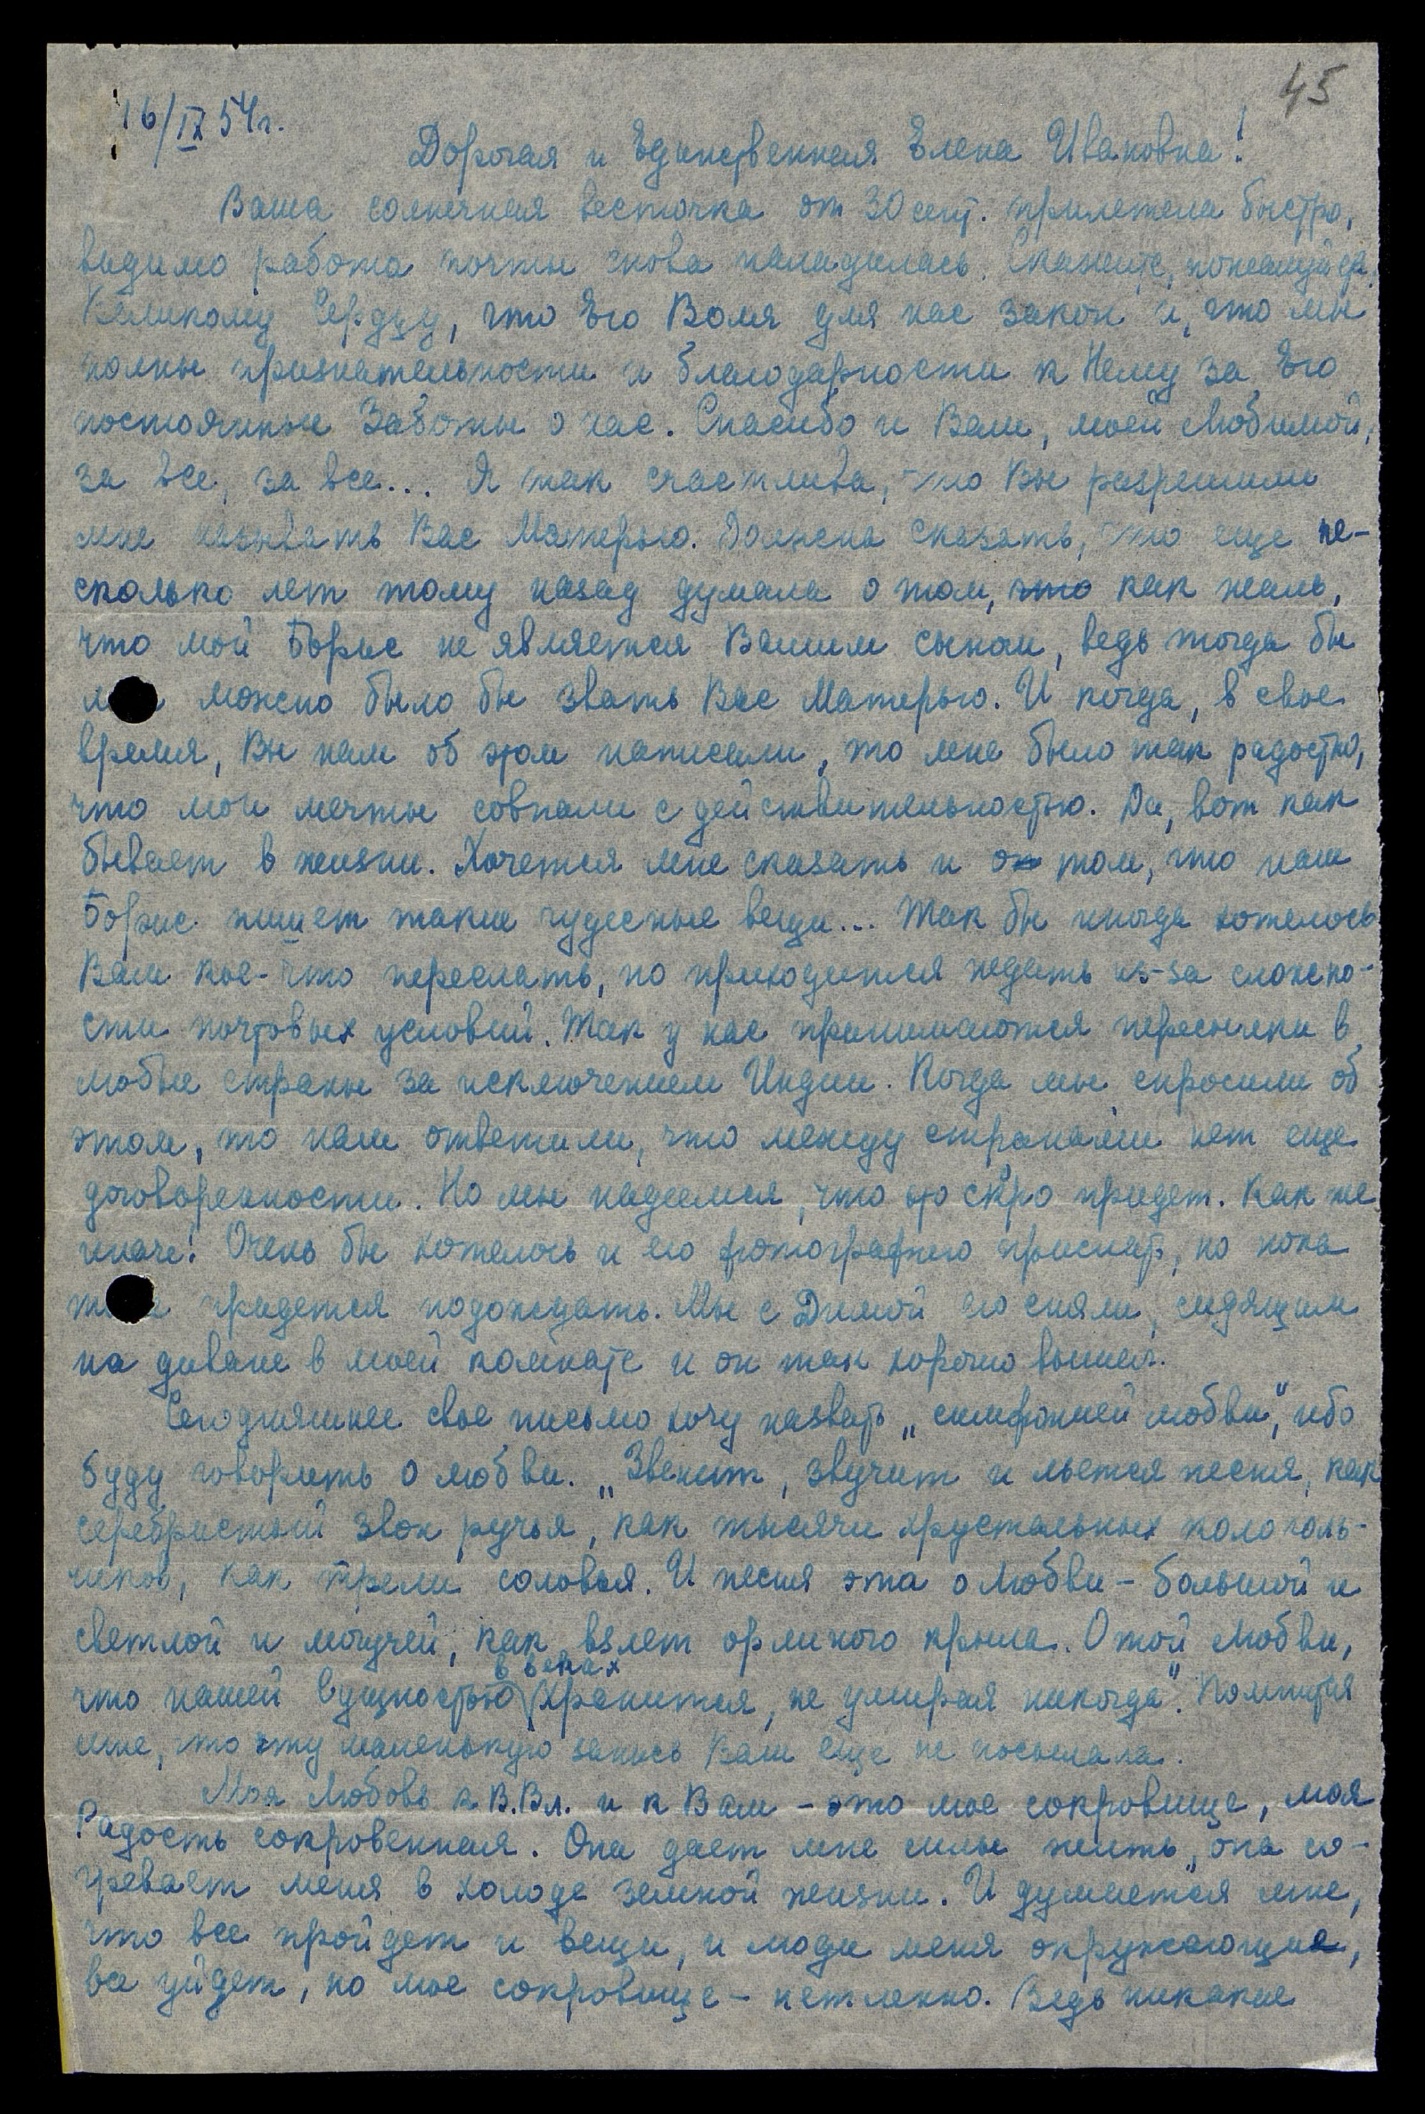 45
16/IX 54г.
Дорогая и Единственная Елена Ивановна!
Ваша солнечная весточка от 30 сент. прилетела быстро,
видимо работа почты снова наладилась. Скажите, пожалуйста,
Великому Сердцу, что Его Воля для нас закон и, что мы
полны признательности и благодарности к Нему за Его
постоянные Заботы о нас. Спасибо и Вам, моей Любимой,
за все, за все... Я так счастлива, что Вы разрешили
мне называть Вас Матерью. Должна сказать, что еще не-
сколько лет тому назад думала о том, что как жаль,
что мой Борис не является Вашим сыном, ведь тогда бы
можно было бы звать Вас Матерью. И когда, в свое
время, Вы нам об этом написали, то мне было так радостно,
что мои мечты совпали с действительностью. Да, вот как
бывает в жизни. Хочется мне сказать и о том, что наш
Борис пишет такие чудесные вещи... Так бы иногда хотелось
Вам кое-что переслать, но приходится ждать из-за сложно-
сти почтовых условий. Так у нас принимаются пересылки в
любые страны за исключением Индии. Когда мы спросили об
этом, то нам ответили, что между странами нет еще
договоренности. Но мы надеемся, что это скоро придет. Как же
иначе! Очень бы хотелось и его фотографию прислать, но пока
придется подождать. Мы с Димой его сняли, сидящим
на диване в моей комнате и он так хорошо вышел.
Сегодняшнее свое письмо хочу назвать „симфонией любви", ибо
буду говорить о любви. „Звенит, звучит и льется песня, как
серебристый звон ручья, как тысячи хрустальных колоколь-
чиков, как трели соловья. И песня эта о Любви – большой и
светлой и могучей, как взлет орлиного крыла. О той Любви,
что нашей сущностью в веках хранится, не умирая никогда". Помнится
мне, что эту маленькую запись Вам еще не посылала.
Моя Любовь к В.Вл. и к Вам – это мое сокровище, моя
Радость сокровенная. Она дает мне силы жить, она со-
гревает меня в холоде земной жизни. И думается мне,
что все пройдет и вещи, и люди меня окружающие,
все уйдет, но мое сокровище – нетленно. Ведь никакие